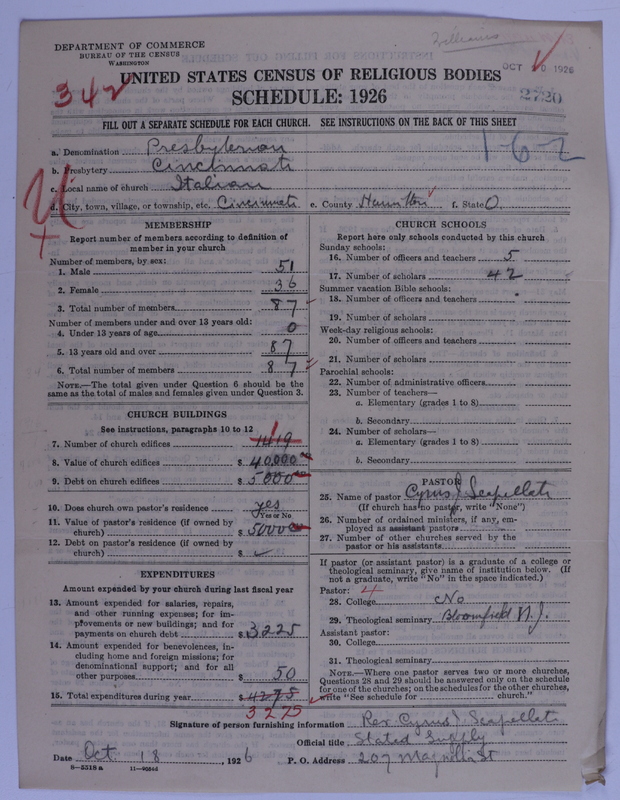 DEPARTMENT OF COMMERCE
BUREAU OF THE CENSUS
WASHINGTON
Williams
OCT 20 1926
2720
UNITED STATES CENSUS OF RELIGIOUS BODIES
342
SCHEDULE: 1926
FILL OUT A SEPARATE SCHEDULE FOR EACH CHURCH. SEE INSTRUCTIONS ON THE BACK OF THIS SHEET
a. Denomination Presbyterian
1-6-2
b. Presbytery Cincinnati
c. Local name of church Italian
d. City, town, village, or township, etc. Cincinnati e. County Hamilton f. State O.
MEMBERSHIP
Report number of members according to definition of
member in your church
Number of members, by sex:
1. Male 51
2. Female 36
3. Total number of members 87
Number of members under and over 13 years old:
4. Under 13 years of age 0
5. 13 years old and over 87
6. Total number of members 87
NOTE.—The total given under Question 6 should be the
same as the total of males and females given under Question 3.
CHURCH BUILDINGS
See instructions, paragraphs 10 to 12
7. Number of church edifices 1
8. Value of church edifices $ 40,000
9. Debt on church edifices $ 5000
10. Does church own pastor's residence? yes
Yes or No
11. Value of pastor's residence (if owned by
church) $ 5000
12. Debt on pastor's residence (if owned by
church) $
EXPENDITURES
Amount expended by your church during last fiscal year
13. Amount expended for salaries, repairs,
and other running expenses; for im-
provements or new buildings; and for
payments on church debt $ 3225
14. Amount expended for benevolences, in-
cluding home and foreign missions; for
denominational support; and for all
other purposes $ 50
15. Total expenditures during year $ 4275
3275
CHURCH SCHOOLS
Report here only schools conducted by this church
Sunday schools:
16. Number of officers and teachers 5
17. Number of scholars 42
Summer vacation Bible schools:
18. Number of officers and teachers
19. Number of scholars
Week-day religious schools:
20. Number of officers and teachers
21. Number of scholars
Parochial schools:
22. Number of administrative officers
23. Number of teachers—
a. Elementary (grades 1 to 8)
b. Secondary
24. Number of scholars—
a. Elementary (grades 1 to 8)
b. Secondary
PASTOR
25. Name of pastor Cyrus J. Scapellati
(If church has no pastor, write "None")
26. Number of ordained ministers, if any, em-
ployed as assistant pastors
27. Number of other churches served by the
pastor or his assistants
If pastor (or assistant pastor) is a graduate of a college or
theological seminary, give name of institution below. (If
not a graduate, write "No" in the space indicated.)
Pastor: 4
28. College No
29. Theological seminary Bloomfield N.J.
Assistant pastor:
30. College
31. Theological seminary
NOTE.—Where one pastor serves two or more churches,
Questions 28 and 29 should be answered only on the schedule
for one of the churches; on the schedules for the other churches,
write "See schedule for church."
Signature of person furnishing information Rev. Cyrus J. Scapellati
Official title Stated Supply
Date Oct. 18, 1926 P. O. Address 207 Magnolia St
8—5318 a 11—9564d